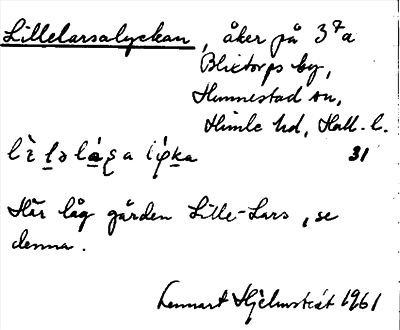 Lillelarsalyckan, åker på 3⁷a
Blixtorps by,
Hunnestad sn,
Himle hd, Hall. l.
31
Här låg gården Lille-Lars, se
denna.
Lennart Hjelmstedt 1961